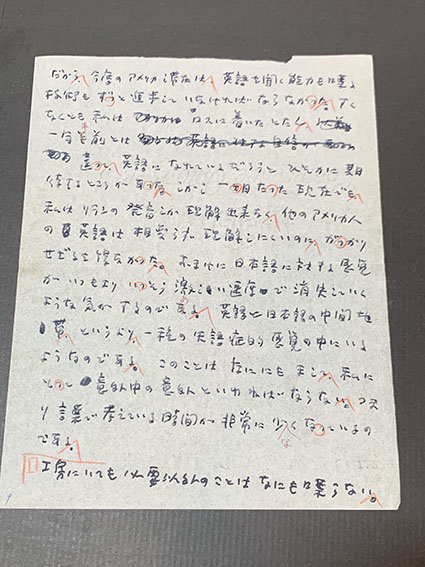 だから、今度のアメリカ滞在は、英語を聞く能力も喋る
技術も ずっと進歩していなければならなかった。すく
なくとも私は ロスに着いたとたん、
一年半前とは
違って、英語になれているだろうと ひそかに期
待するところがあった。しかし 一週たった現在でも、
私は リランの発音しか理解出来ない。他のアメリカ人
の英語は相変らず 理解しにくいのに、がっかり
せざるを得なかった。おまけに日本語に対する感覚
が いつもより いっそう激しい速度で 消失していく
ような気がするのである。英語と日本語の中間
というより、一種の失語症的感覚の中にいる
ようなのである。このことは なににもまして、私に
とって 意外中の意外といわねばならない。つま
り 言葉で考えている時間が 非常に少くなっているの
である。
工房にいても 必要以外のことは なにも喋らない。